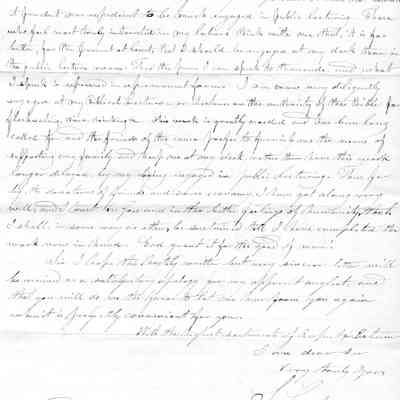 prudent was expedient to be much engaged in public lectures. Those
who feel most deeply interested in my labors think with me that it is far
better, for the present at least, that I should be engaged at my desk than in
the public lecture room. For the pen I can speak to thousands, and what
I speak is expressed in a permanent form. I am now very diligently
engaged at my Biblical lectures or
This work is greatly needed and has been long
called for and the friends of the cause prefer to furnish me the means of
supporting my family and keep me at my desk rather than have this work
longer delayed by my being engaged in public lecturing. Thus far
by the donations of friends I have got along very
well, and I trust in God and in the better feelings of humanity that
I shall in some way or other, be sustained till I have completed the
work now in hand. God grant it for the good of man!
Sir I hope this hastily written but very sincere letter will
be received as a satisfactory apology for my apparent neglect, and
that you will do me the favor to let me hear from you again
when it is perfectly convenient for you.
With the highest sentiments of respect & Esteem
I am dear Sir
Very truly Yours